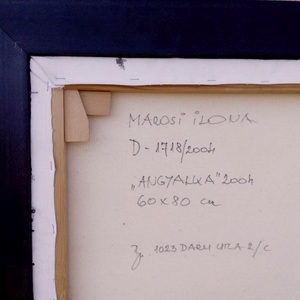 MAROSI ILONA
D-1718/2004
„ANGYALKA” 2004
60x80 cm
1023 DARU UTCA 2/C